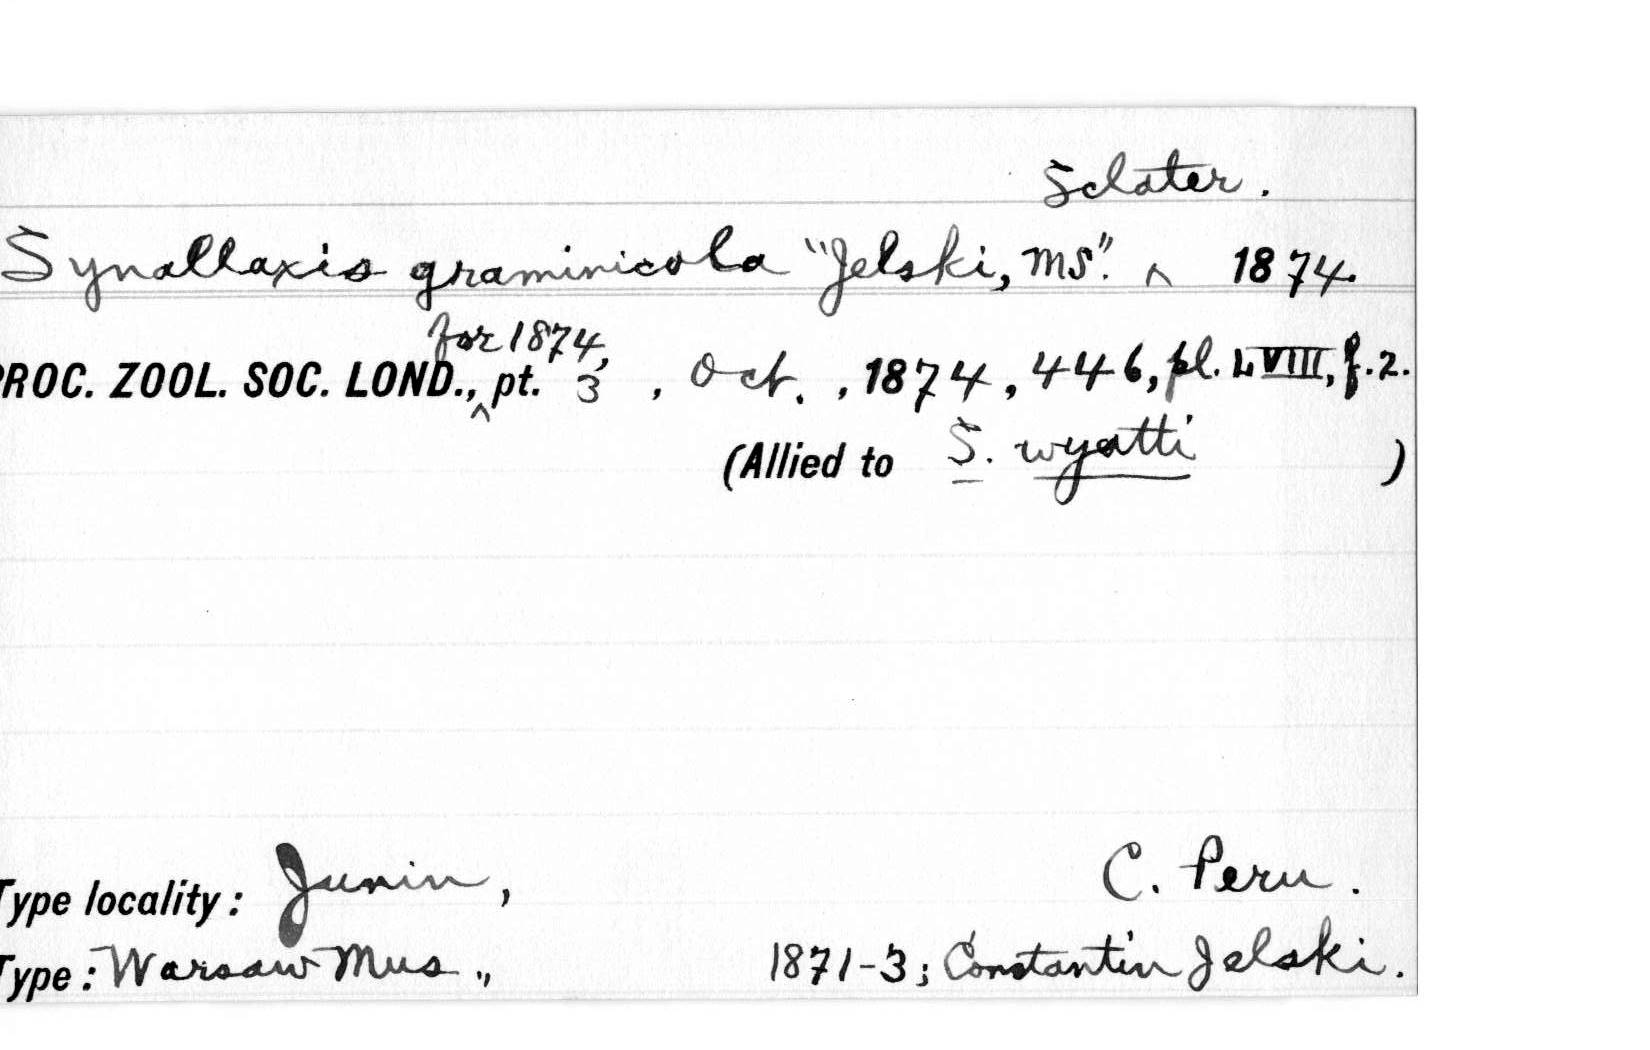 Sclater.
Synallaxis graminicola "Jelski, MS". ^ 1874.
for 1874,
PROC. ZOOL. SOC. LOND., ^ pt. 3, Oct., 1874, 446, pl. LVIII, f.2.
(Allied to S. wyatti )
Type locality: Junin, C. Peru.
Type: Warsaw Mus., 1871-3; Constantin Jelski.